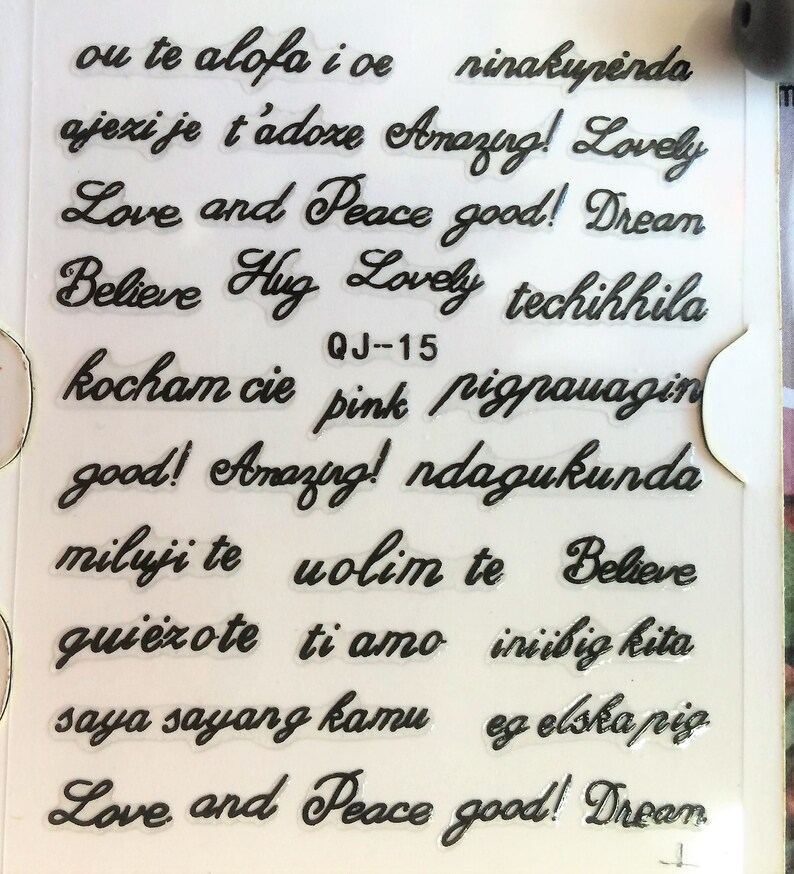 ou te alofa i oe ninakupenda
ajexi je t'adoxe Amazing! Lovely
Love and Peace good! Dream
Believe Hug Lovely techihhila
QJ-15
kocham cie pink pigpauagin
good! Amazing! ndagukunda
miluji te uolim te Believe
guiexote ti amo iniibig kita
saya sayang kamu eg elska pig
Love and Peace good! Dream